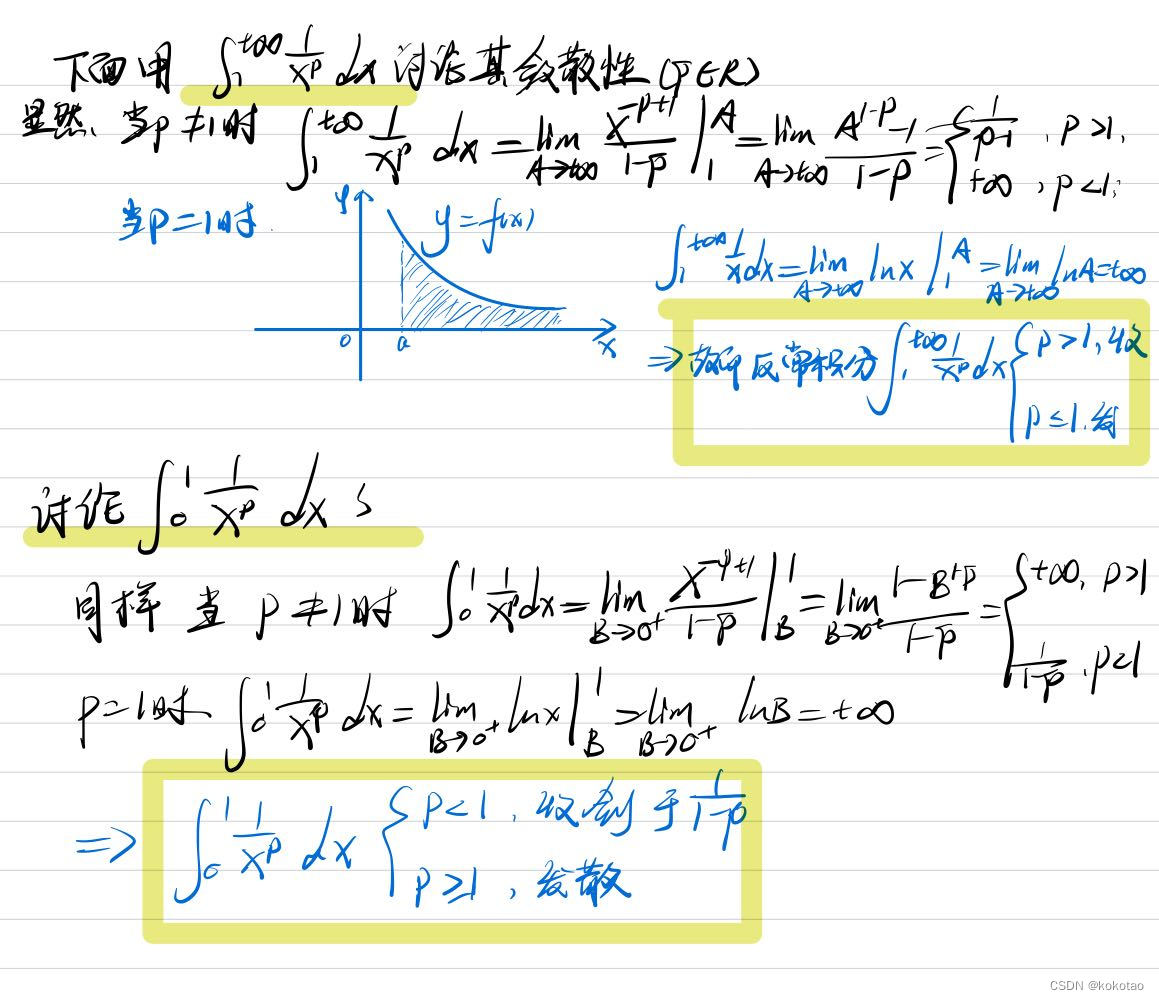 下面用 ∫₁^{+∞} 1/x^p dx 讨论其敛散性(p∈R)
显然、当p≠1时 ∫₁^{+∞} 1/x^p dx = lim_{A→+∞} x^{-p+1}/(1-p) |₁^A = lim_{A→+∞} (A^{1-p}-1)/(1-p) = { 1/(p-1), p>1, +∞, p<1;
当p=1时.
y
y=f(x)
0 a x
∫₁^{+∞} 1/x dx = lim_{A→+∞} lnx |₁^A = lim_{A→+∞} lnA = +∞
⇒ 故 反常积分 ∫₁^{+∞} 1/x^p dx { p>1, 收 p≤1, 发
讨论 ∫₀^1 1/x^p dx
同样 当 p≠1时 ∫₀^1 1/x^p dx = lim_{B→0⁺} x^{-p+1}/(1-p) |_B^1 = lim_{B→0⁺} (1-B^{1-p})/(1-p) = { +∞, p>1 1/(1-p), p<1
p=1时 ∫₀^1 1/x^p dx = lim_{B→0⁺} lnx |_B^1 = lim_{B→0⁺} lnB = +∞
⇒ ∫₀^1 1/x^p dx { p<1, 收敛于 1/(1-p) p≥1, 发散
CSDN @kokotao